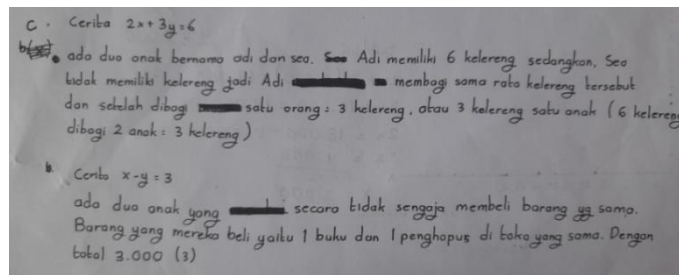 c. Cerita 2x + 3y = 6
b. ada dua anak bernama adi dan sea. Adi memiliki 6 kelereng sedangkan, Sea
tidak memiliki kelereng jadi Adi membagi sama rata kelereng tersebut
dan setelah dibagi satu orang = 3 kelereng, atau 3 kelereng satu anak (6 kelereng
dibagi 2 anak = 3 kelereng)
b. Cerita x - y = 3
ada dua anak yang secara tidak sengaja membeli barang yg sama.
Barang yang mereka beli yaitu 1 buku dan 1 penghapus di toko yang sama. Dengan
total 3.000 (3)